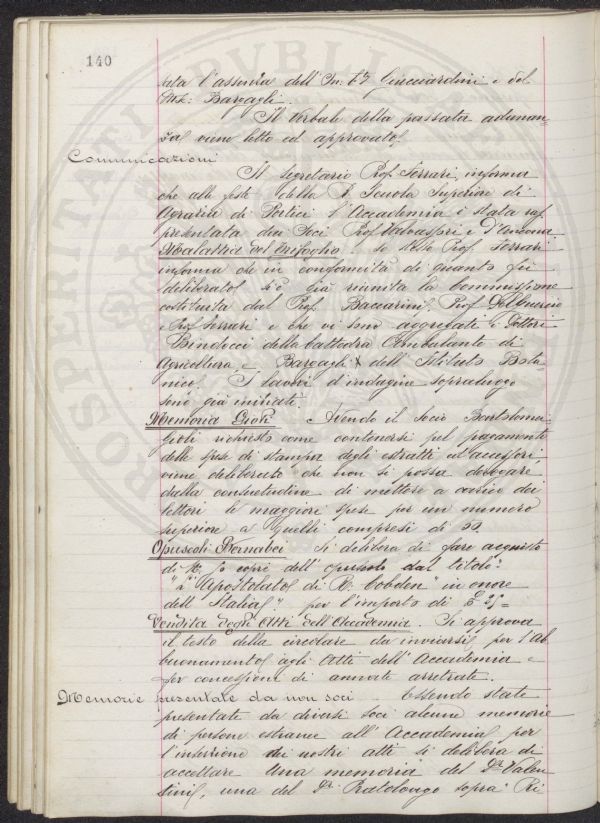 140
sata l'assenza dell' On. Guicciardini e del
Bargagli.
Il verbale della passata adunan-
za viene letto ed approvato.
Comunicazioni
Il segretario Prof. Ferrari, informa
che alle feste della R. Scuola Superiore di
Agraria di Portici l'Accademia è stata rap
presentata dai Soci Prof. Valvassori e D'Ancona
Malattia del trifoglio. Lo stesso Prof. Ferrari
informa che in conformità di quanto fu
deliberato si è già riunita la Commissione
costituita dal Prof. Baccarini, Prof. Del Guercio
e Prof. Ferrari e che vi sono aggregati i Dottori
Bindocci della Cattedra Ambulante di
Agricoltura e Bargagli dell' Istituto Bota
nico. I lavori d'indagine sopraluogo
sono già iniziati.
Memoria Gioli Avendo il socio Bartolomei
Gioli richiesto come contenersi pel pagamento
delle spese di stampa degli estratti ed accessori,
viene deliberato che non si possa derogare
dalla consuetudine di mettere a carico dei
lettori le maggiori spese per un numero
superiore a quelli compresi di
Opuscoli Bernabei Si delibera di fare acquisto
di copie dell' opuscolo dal titolo:
"L'Apostolato di R. Cobden" in onore
dell' Italia", per l'importo di
Vendita degli Atti dell'Accademia. Si approva
il testo della circolare da inviarsi per l'Ab
buonamento agli Atti dell' Accademia e
per concessioni di annate arretrate.
Memorie presentate da non soci Essendo state
presentate da diversi soci alcune memorie
di persone estranee all' Accademia per
l'inserzione nei nostri atti si delibera di
accettare una memoria del Dr. Valen
tini, una del Dr. Pratolongo sopra: Ri
PROSPERITATI PVBLICAE